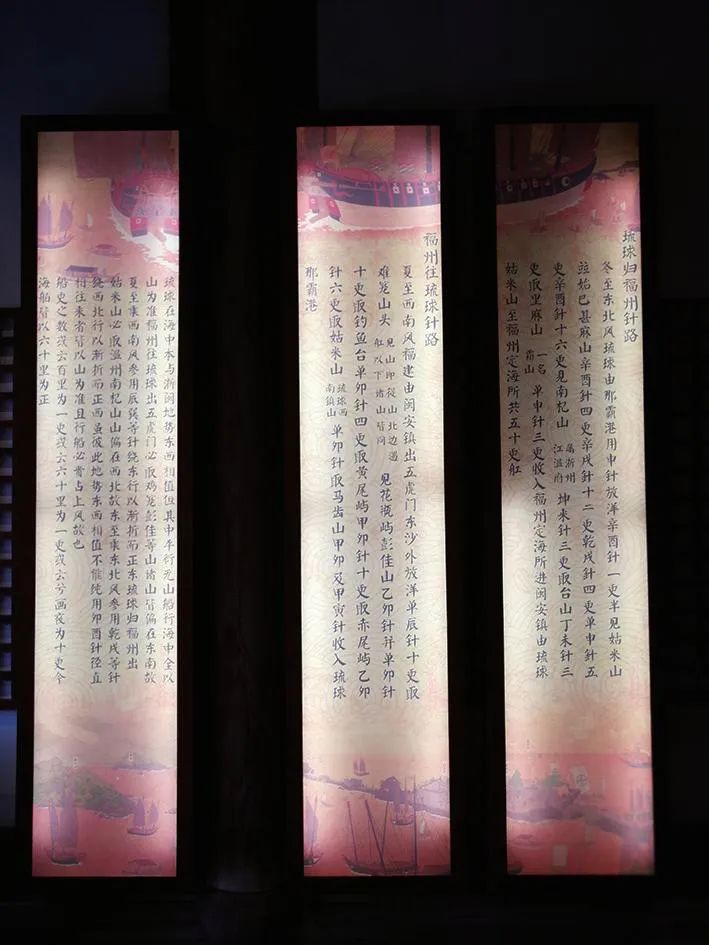 琉球归福州針路
冬至东北风琉球由那霸港用申針放洋辛酉針一更半见姑米山
竝姑巴甚麻山辛酉針四更辛戌針十二更乾戌針四更单申針五
更辛酉針十六更见南杞山
属浙州
江温府
坤未針三更取台山丁未針三
更取里麻山
一名
霜山
单申針三更收入福州定海所进闽安镇由琉球
姑米山至福州定海所共五十更舡
福州往琉球针路
夏至西南风福建由闽安镇出五虎门东沙外放洋单辰针十更取
难笼山头
见山即从山北边过
舡以下诸山皆同
见花瓶屿彭佳山乙卯针并单卯针
十更取钓鱼台单卯针四更取黄尾屿甲卯针十更取赤尾屿乙卯
针六更取姑米山
琉球西
南镇山
单卯针取马齿山甲卯及甲寅针收入琉球
那霸港
琉球在海中本与浙闽地势东西相值但其中平衍无山船行海中全以
山为准福州往琉球出五虎门必取鸡笼彭佳等山诸山皆偏在东南故
夏至乘西南风参用辰巽等针绕东行以渐折而正东琉球归福州出
姑米山必取温州南杞山山偏在西北故冬至乘东北风参用乾戌等针
绕西北行以渐折而正西虽彼此地势东西相值不能纯用卯酉针径直
相往来者皆以山为准且行船必贵占上风故也
船更之数或云百里为一更或云六十里为一更或云分昼夜为十更今
海舶皆以六十里为正